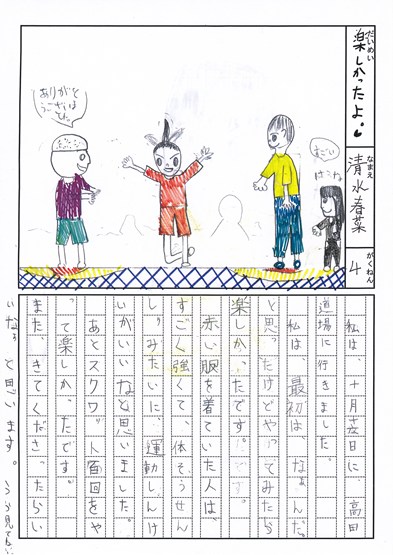 だいめい
楽しかったよ。
なまえ
清水春菜
がくねん
4
ありがと
うございま
した。
すごい
私は、十月 日に、高田
道場に行きました。
私は、最初は、なぁんだ。
と思ったけどやってみたら
楽しかったです。
赤い服を着ていた人は、
すごく強くて、体そうせん
しゅみたいに、運動しんけ
いがいいなと思いました。
あとスクワット百回をや
って楽しかったです。
また、きてくださったらい
いなぁと思います。